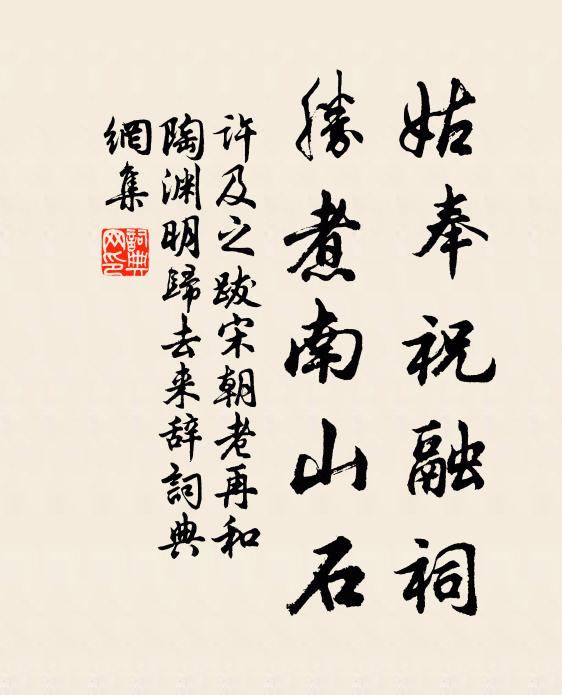 姑奉祝融祠
勝煮南山石
許及之跋宋朝老再和
陶渊明歸去来辞詞典
網集
詞典网印